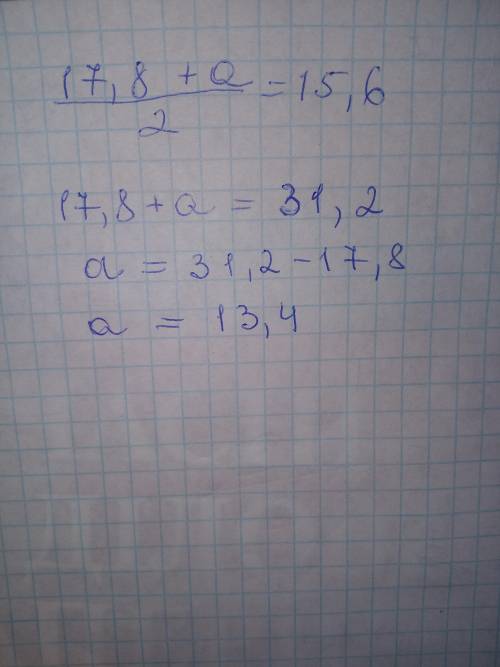 17,8 + a
2
= 15,6
17,8 + a = 31,2
a = 31,2 - 17,8
a = 13,4